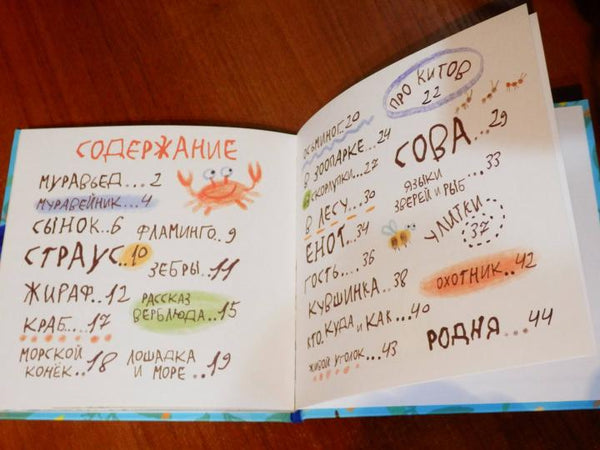 СОДЕРЖАНИЕ
МУРАВЬЕД...2
МУРАВЕЙНИК...4
СЫНОК..6
ФЛАМИНГО..9
СТРАУС..10
ЗЕБРЫ..11
ЖИРАФ..12
РАССКАЗ
ВЕРБЛЮДА..15
КРАБ....17
МОРСКОЙ
КОНЁК..18
ЛОШАДКА
И МОРЕ...19
ПРО КИТОВ
22
ОСЬМИНОГ.20
В ЗООПАРКЕ...24
СКОРЛУПКИ...27
СОВА...29
В ЛЕСУ...30
ЯЗЫКИ
ЗВЕРЕЙ И РЫБ...33
ЕНОТ..34
УЛИТКИ
37
ГОСТЬ....36
КУВШИНКА..38
ОХОТНИК..42
КТО, КУДА И КАК...40
РОДНЯ....44
ЖИВОЙ УГОЛОК...43